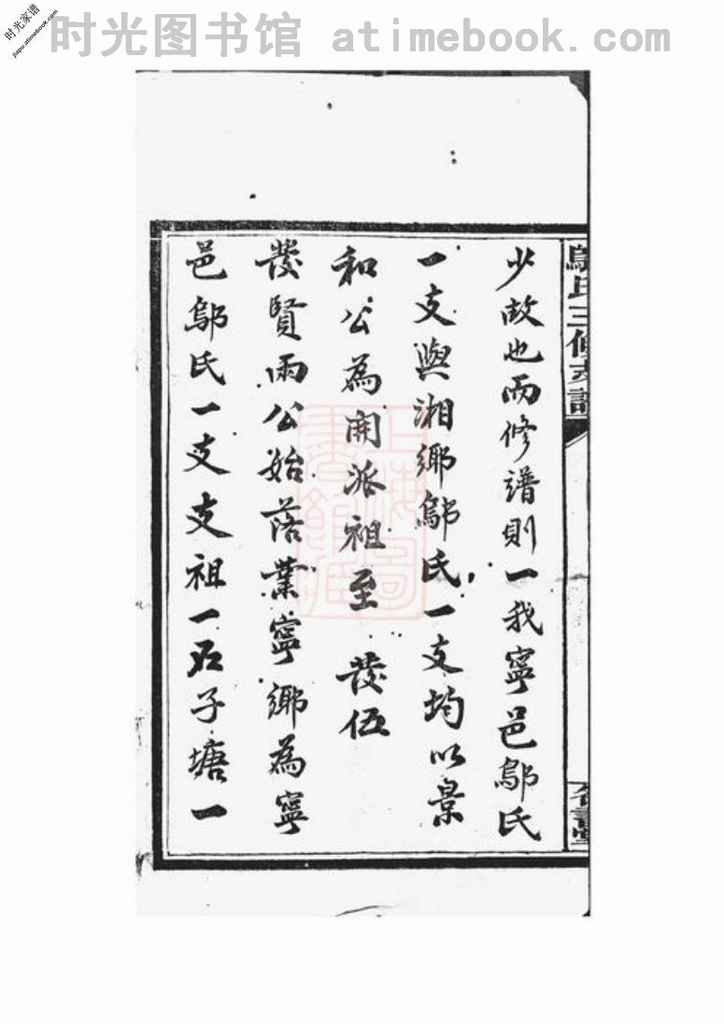 时光图书馆 atimebook.com
时光家谱
jiapu.atimebook.com
少故也而修譜則一我寧邑鄔氏
一支與湘鄉鄔氏一支均以景
和公為開派祖至 發伍
發賢兩公始落業寧鄉為寧
邑鄔氏一支支祖一石子塘一
鄔氏三修支譜